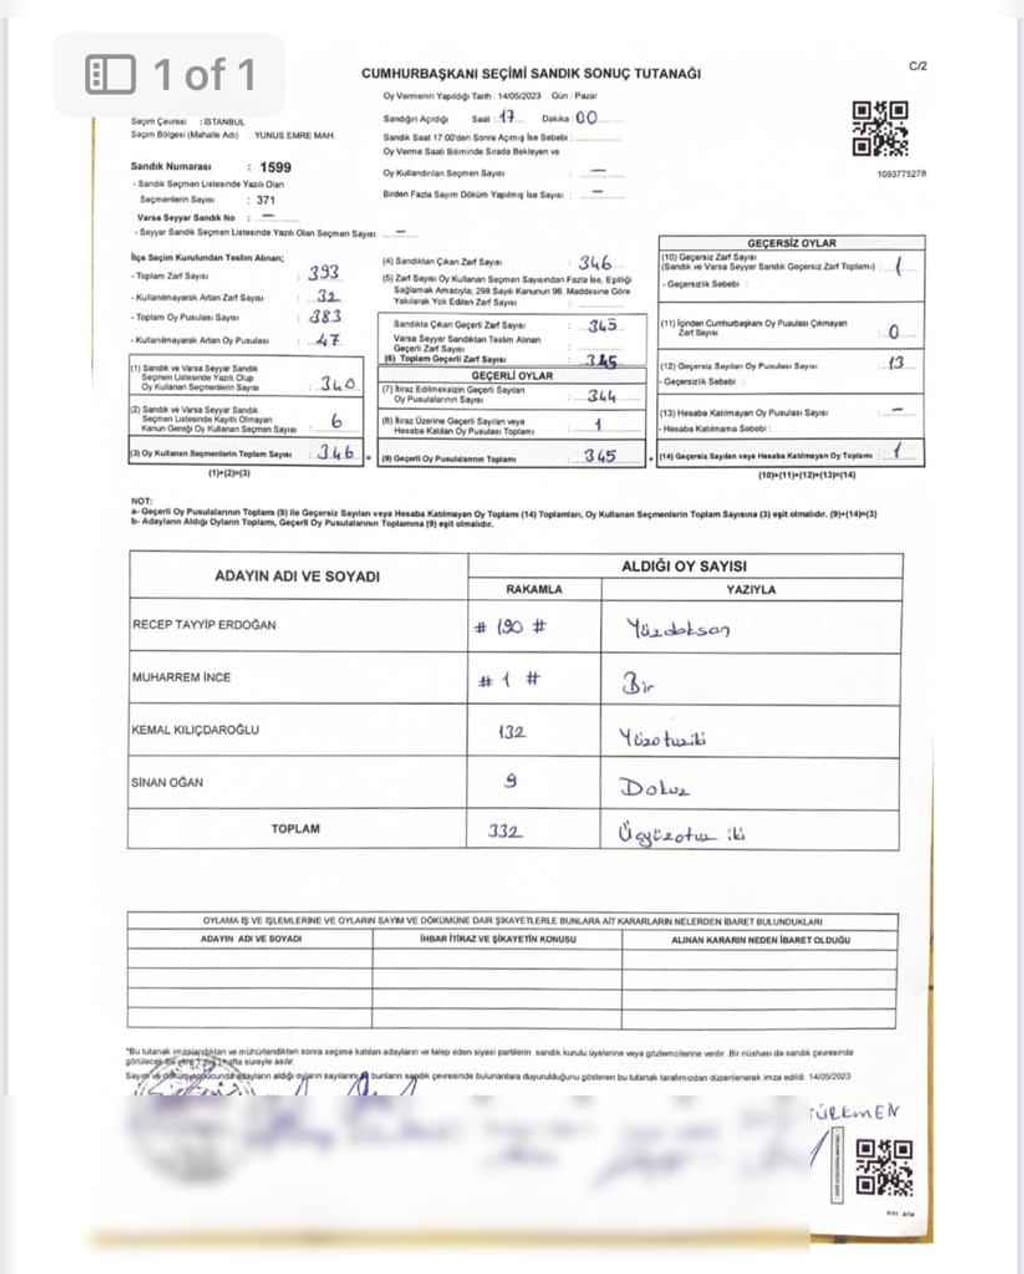 1 of 1
CUMHURBAŞKANI SEÇİMİ SANDIK SONUÇ TUTANAĞI
C/2
Oy Vermenin Yapıldığı Tarih : 14/05/2023 Gün : Pazar
Seçim Çevresi : İSTANBUL
Seçim Bölgesi (Mahalle Adı) YUNUS EMRE MAH.
Sandığın Açıldığı Saat : 17 Dakika : 00
Sandık Saat 17:00'den Sonra Açılmış İse Sebebi :
Oy Verme Saati Bitiminde Sırada Bekleyen ve
Oy Kullandırılan Seçmen Sayısı : —
Birden Fazla Sayım Döküm Yapılmış İse Sayısı : —
1093775278
Sandık Numarası : 1599
- Sandık Seçmen Listesinde Yazılı Olan
Seçmenlerin Sayısı : 371
Varsa Seyyar Sandık No : —
- Seyyar Sandık Seçmen Listesinde Yazılı Olan Seçmen Sayısı : —
İlçe Seçim Kurulundan Teslim Alınan;
- Toplam Zarf Sayısı : 393
- Kullanılmayarak Artan Zarf Sayısı : 32
- Toplam Oy Pusulası Sayısı : 383
- Kullanılmayarak Artan Oy Pusulası : 47
(1) Sandık ve Varsa Seyyar Sandık
Seçmen Listesinde Yazılı Olup
Oy Kullanan Seçmenlerin Sayısı : 340
(2) Sandık ve Varsa Seyyar Sandık
Seçmen Listesinde Kayıtlı Olmayan
Kanun Gereği Oy Kullanan Seçmen Sayısı : 6
(3) Oy Kullanan Seçmenlerin Toplam Sayısı : 346
(1)+(2)=(3)
(4) Sandıktan Çıkan Zarf Sayısı : 346
(5) Zarf Sayısı Oy Kullanan Seçmen Sayısından Fazla İse, Eşitliği
Sağlamak Amacıyla, 298 Sayılı Kanunun 98. Maddesine Göre
Yakılarak Yok Edilen Zarf Sayısı :
Sandıkta Çıkan Geçerli Zarf Sayısı : 345
Varsa Seyyar Sandıktan Teslim Alınan
Geçerli Zarf Sayısı :
(6) Toplam Geçerli Zarf Sayısı : 345
GEÇERLİ OYLAR
(7) İtiraz Edilmeksizin Geçerli Sayılan
Oy Pusulalarının Sayısı : 344
(8) İtiraz Üzerine Geçerli Sayılan veya
Hesaba Katılan Oy Pusulası Toplamı : 1
(9) Geçerli Oy Pusulalarının Toplamı : 345
GEÇERSİZ OYLAR
(10) Geçersiz Zarf Sayısı
(Sandık ve Varsa Seyyar Sandık Geçersiz Zarf Toplamı) : 1
- Geçersizlik Sebebi :
(11) İçinden Cumhurbaşkanı Oy Pusulası Çıkmayan
Zarf Sayısı : 0
(12) Geçersiz Sayılan Oy Pusulası Sayısı : 13
- Geçersizlik Sebebi :
(13) Hesaba Katılmayan Oy Pusulası Sayısı : —
- Hesaba Katılmama Sebebi :
(14) Geçersiz Sayılan veya Hesaba Katılmayan Oy Toplamı : 1
(10)+(11)+(12)+(13)=(14)
NOT:
a- Geçerli Oy Pusulalarının Toplamı (9) ile Geçersiz Sayılan veya Hesaba Katılmayan Oy Toplamı (14) Toplamları, Oy Kullanan Seçmenlerin Toplam Sayısına (3) eşit olmalıdır. (9)+(14)=(3)
b- Adayların Aldığı Oyların Toplamı, Geçerli Oy Pusulalarının Toplamına (9) eşit olmalıdır.
ADAYIN ADI VE SOYADI ALDIĞI OY SAYISI
RAKAMLA YAZIYLA
RECEP TAYYİP ERDOĞAN # 190 # Yüzdoksan
MUHARREM İNCE # 1 # Bir
KEMAL KILIÇDAROĞLU 132 Yüzotuziki
SİNAN OĞAN 9 Dokuz
TOPLAM 332 Üçyüzotuz iki
OYLAMA İŞ VE İŞLEMLERİNE VE OYLARIN SAYIM VE DÖKÜMÜNE DAİR ŞİKAYETLERLE BUNLARA AİT KARARLARIN NELERDEN İBARET BULUNDUKLARI
ADAYIN ADI VE SOYADI İHBAR İTİRAZ VE ŞİKAYETİN KONUSU ALINAN KARARIN NEDEN İBARET OLDUĞU
"Bu tutanak imzalandıktan ve mühürlendikten sonra seçime katılan adayların ve talep eden siyasi partilerin sandık kurulu üyelerine veya gözlemcilerine verilir. Bir nüshası da sandık çevresinde
görülecek bir yere 1 (bir) hafta süreyle asılır.
Sayım ve döküm sonucunda adayların aldığı oyların sayılarını bunların sandık çevresinde bulunanlara duyurulduğunu gösteren bu tutanak tarafımızdan düzenlenerek imza edildi. 14/05/2023
TÜRKMEN